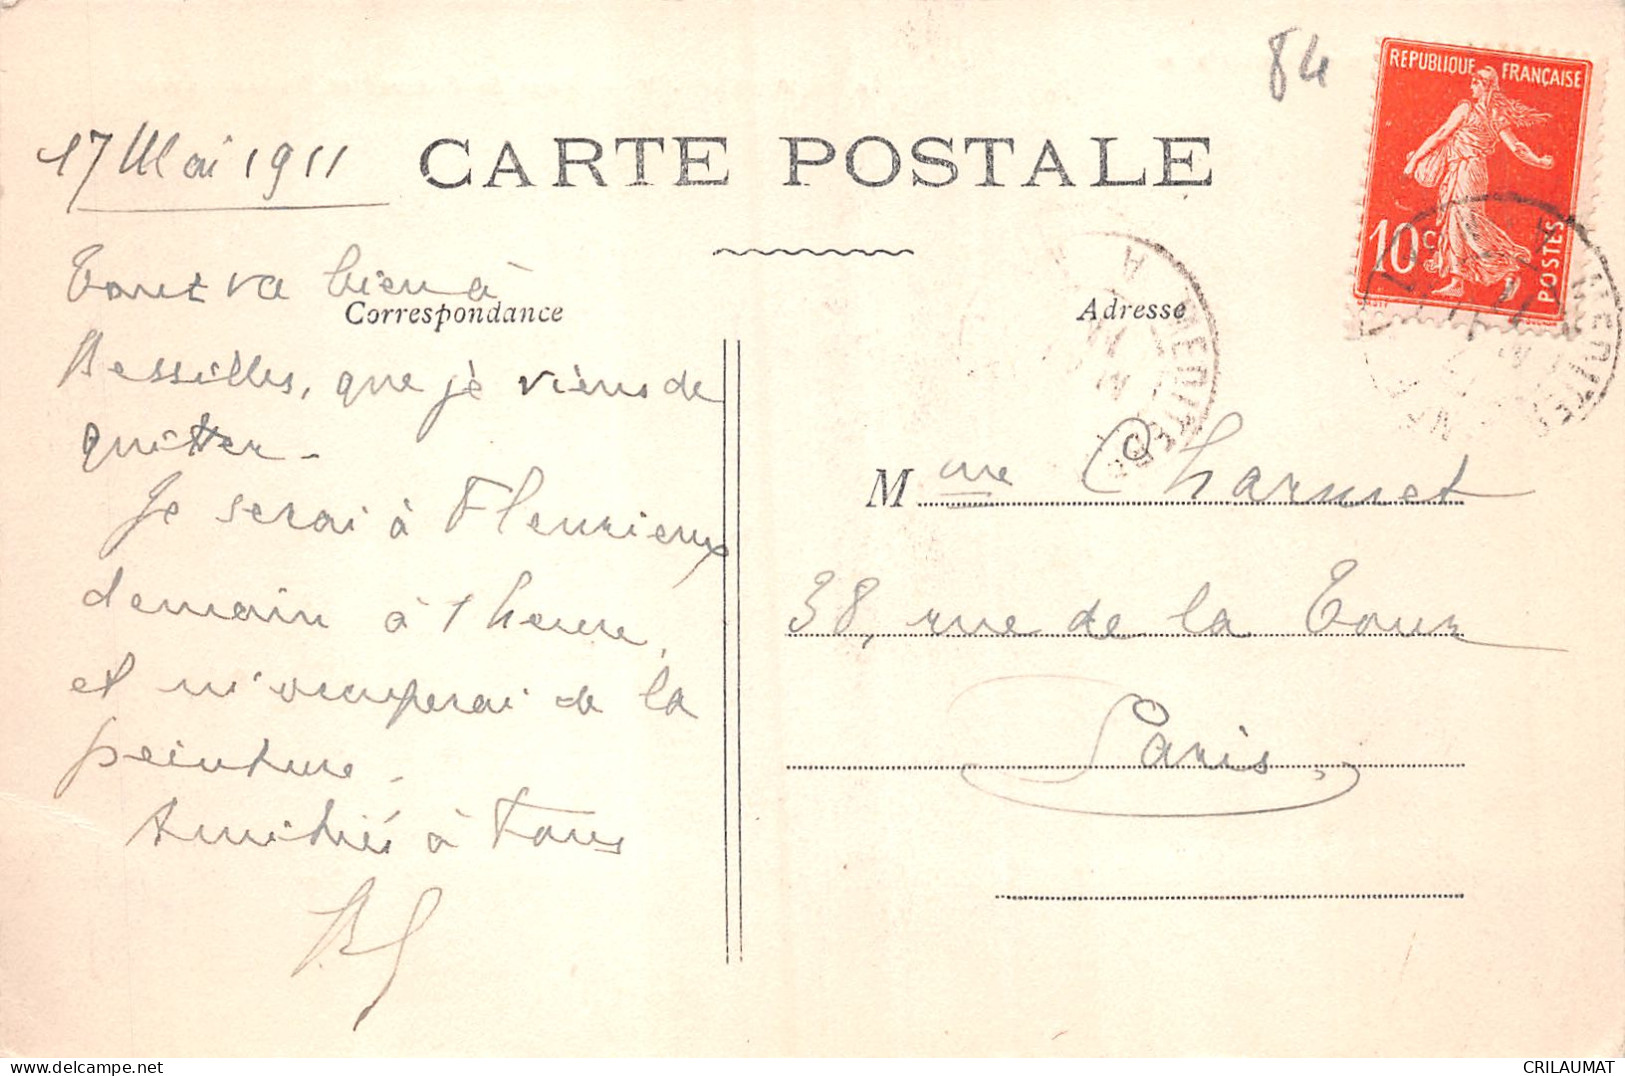 84
REPUBLIQUE FRANÇAISE
10 c.
POSTES
17 Mai 1911
CARTE POSTALE
Tout va bien à
Correspondance
Adresse
Bessilles, que je viens de
quitter.
Je serai à Fleurieux
demain à 1 heure,
et m'occuperai de la
peinture.
Amitiés à tous
Mme Charmet
38, rue de la Tour
Paris
CRILAUMAT